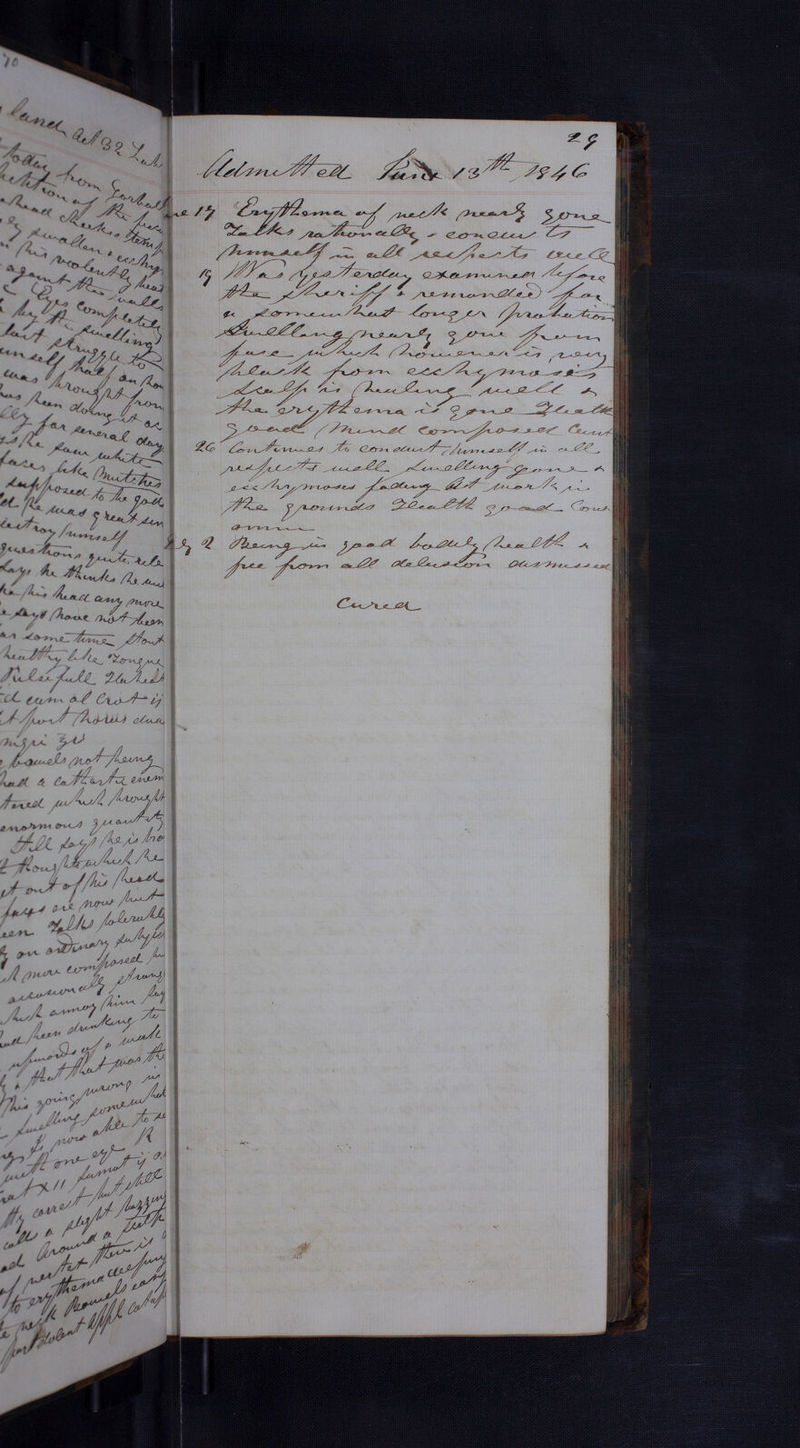 70
land Aet 32 Lab
today from Gorbals
repetition of the
head cheeks & temp
ly swollen & ecchy
his violently head
against the walls
Eyes completely
by the swelling
last struggle to
himself half an hour
was brought from
has been doing it oc
lly for several days
he saw white
faces like Mutches
supposed to be gods
he was great sin
destroy himself
questions quite rele
Says he thinks he
his head any more
says have not been
for some time Stout
healthy like Tongue
Pulse full
cum ol Crot ii
post horas duas
nigri
bowels not being
had a cathartic enem
tered which brought
enormous quantity
Still says he is
thoughts which he
get out of his head
faces are now but
een Talks tolerably
on ordinary subjects
more composed
occasionally strange
which annoy him Says
had been drinking to
upwards of a week
& that that was the
his going wrong in
Swelling somewhat
now able to se
with one eye R
XII Sumat ij
correct but still
a slight buzzing
Around a
of vertex there is
to erythema
neck Bowels easy
Appl Catap
29
Admitted June 13th 1846
ne 17 Erythema of neck nearly gone
Talks rationally & conducts
himself in all respects well
19 Was yesterday examined before
the sheriff & remanded for
a somewhat longer probation
Swelling nearly gone from
face which however is very
black from ecchymosis
Scalp is healing well &
the erythema is gone Health
good Mind composed Cont
26 Continues to conduct himself in all
respects well Swelling gone &
ecchymoses fading At work in
the grounds Health good Cont
omnia
July 2 Being in good bodily health &
free from all delusion dismissed
Cured